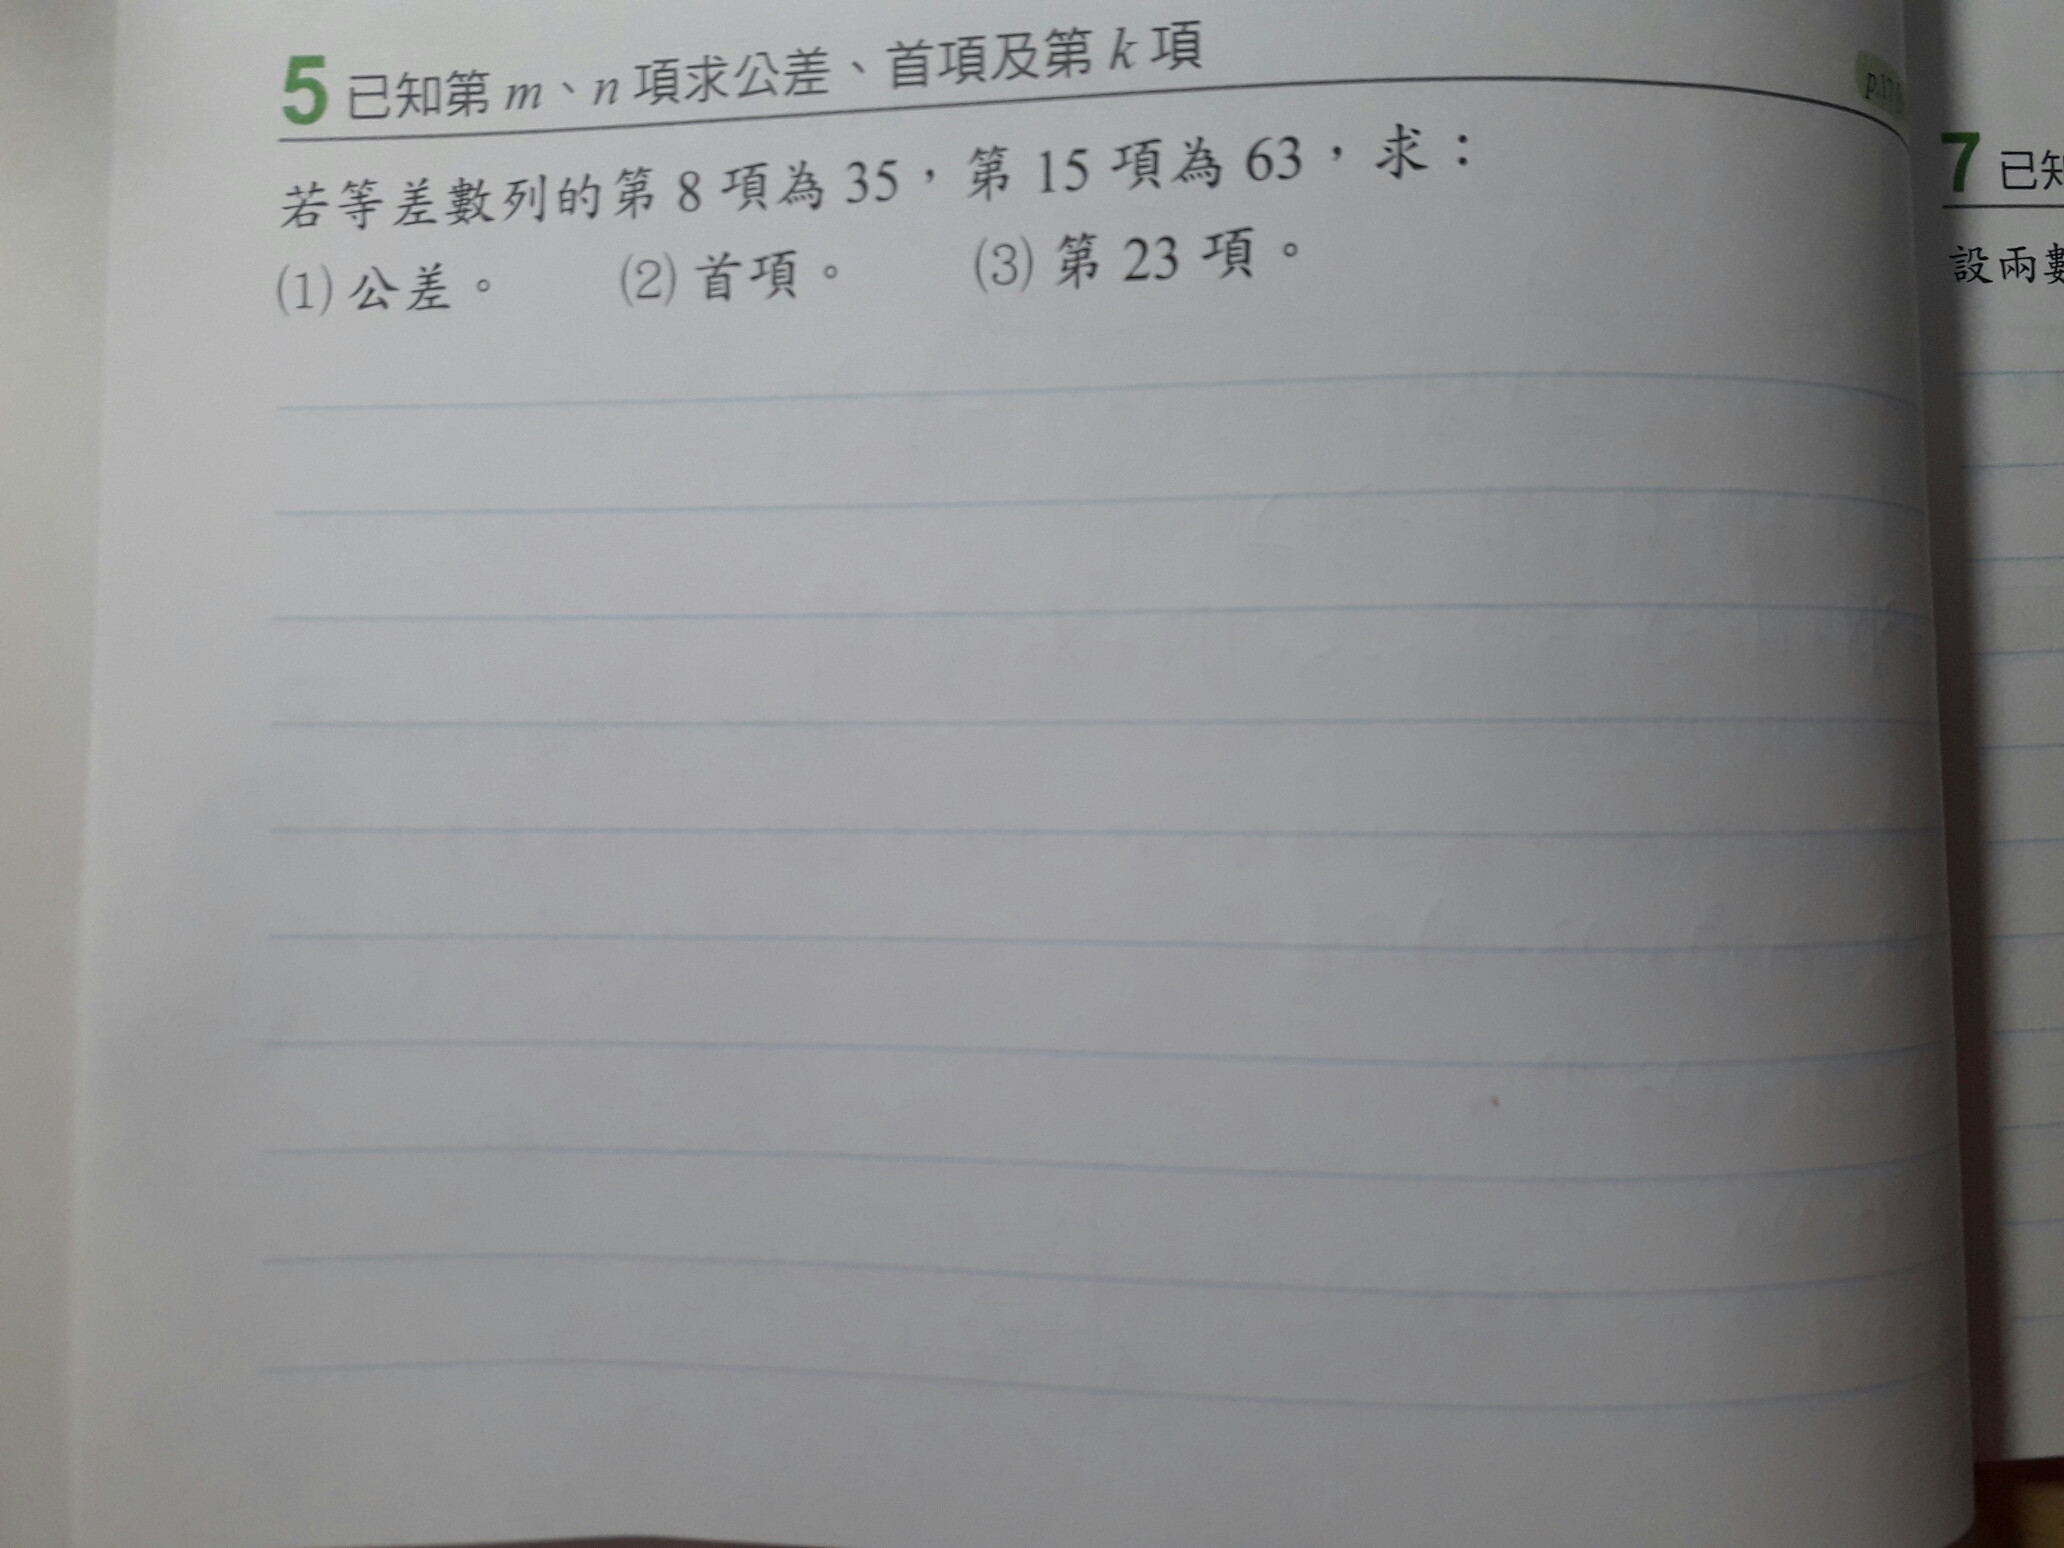 5 已知第 m、n 項求公差、首項及第 k 項
若等差數列的第 8 項為 35，第 15 項為 63，求：
(1) 公差。 (2) 首項。 (3) 第 23 項。
7 已知
設兩數